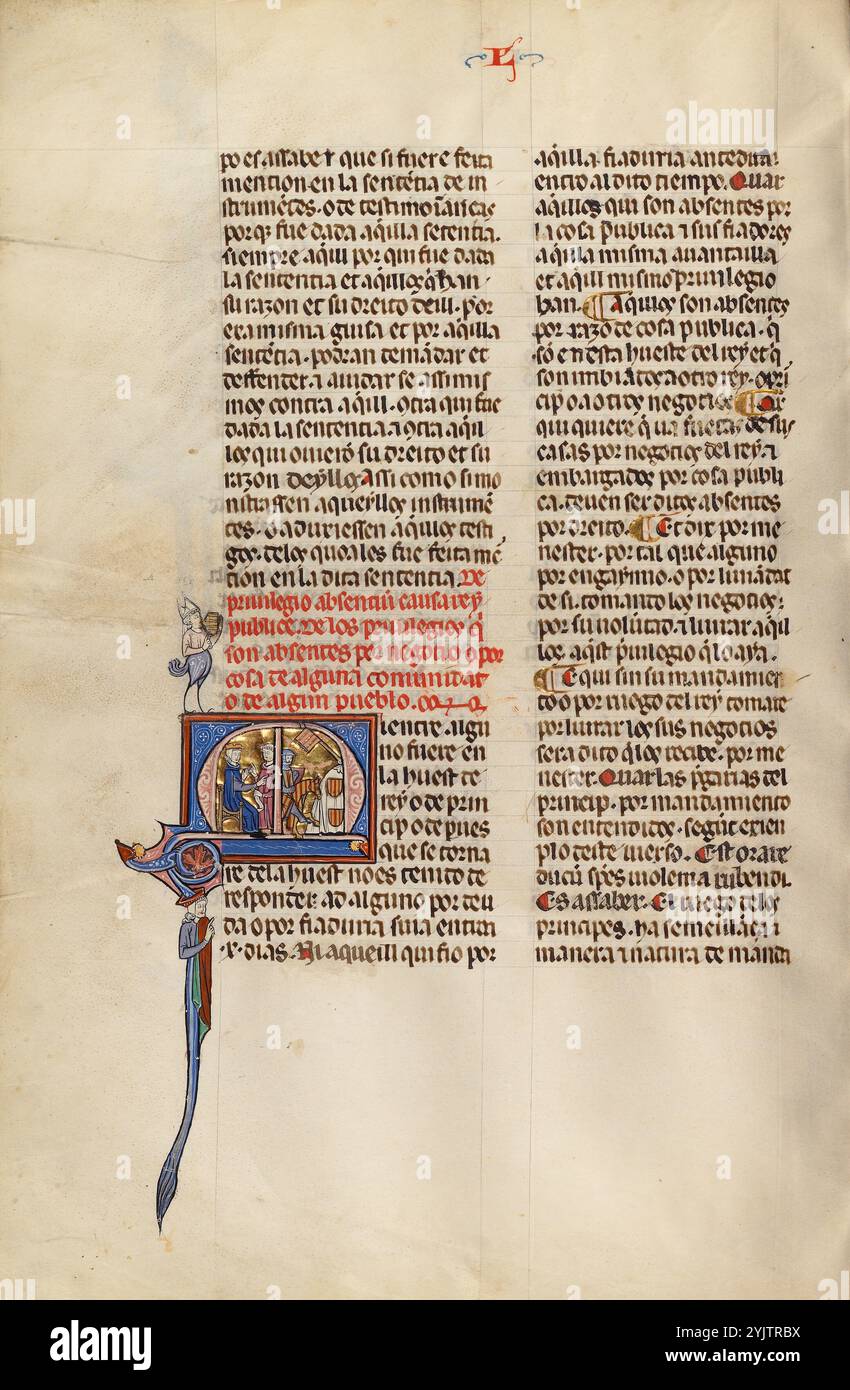 L
po es assaber que si fuere feita
mention en la sentēcia de in
strumētos · o de testimoīancia
por q̄ fue dada aq̄lla setencia.
siempre aq̄lli por qui fue dada
la sentencia et aq̄llos q̄ han
su razon et su dreito deill · por
era misma guisa et por aq̄lla
sentēcia · podran demādar et
deffender ⁊ aiudar se assimis
mos contra aq̄ll · ꝯtra qui fue
dada la sentencia ⁊ ꝯtra aq̄ll
los qui ouierō su dreito et su
razon deȳllos Assi como si mo
nistrassen aqueȳllos instrumē
tos · o aduxiessen aq̄llos testi
gos · delos quoales fue feita mē
cion en la dita sentencia. De
priuilegio absenciū causa reȳ
publice. De los priuilegios q̄
son absentes por negocio o por
cosa de alguna comunidat
o de algun pueblo.
ientre algu
no fuere en
la huest de
rey o de prin
cip o de pues
que se torna
re dela huest no es tenido de
responder ad alguno por deu
da o por fiaduria suia entro
·x· dias. Ni aqueill qui fio por
aq̄lla fiaduria antedita
entro al dito tiempo. Quar
aq̄llos qui son absentes por
la cosa publica ⁊ sus fiadores
aq̄lla misma auantailla
et aq̄ll mismo priuilegio
han. ¶ Aquilos son absentes
por razō de cosa publica · q̄
sō en esta hueste del rey et q̄
son imbiados a otro rey · o pri
cip o a otros negocios ¶
qui quiere q̄ ua fueras de su
casas por negocios del rey ⁊
embargados por cosa publi
ca. deuen ser ditos absentes
por dreito. ¶ Et dix por me
nester · por tal que alguno
por engaynno · o por liuiādat
de si. tomando los negocios ·
por su uolūtad ⁊ liurar aq̄ll
los, aq̄st priuilegio q̄ lo aya.
¶ E qui sin su mandamien
to o por ruego del rey tomare
por liurar los sus negocios
sera dito q̄ los recibe · por me
nester. Quar las p̄garias del
princip · por mandamiento
son entendidos · segūt exien
plo deste uierso. Est orare
ducū sp̄es uiolenta iubendi.
Es assaber. El ruego delos
principes · ha semeillāça ⁊
manera ⁊ natura de māda
alamy
Image ID: 2YJTRBX
www.alamy.com